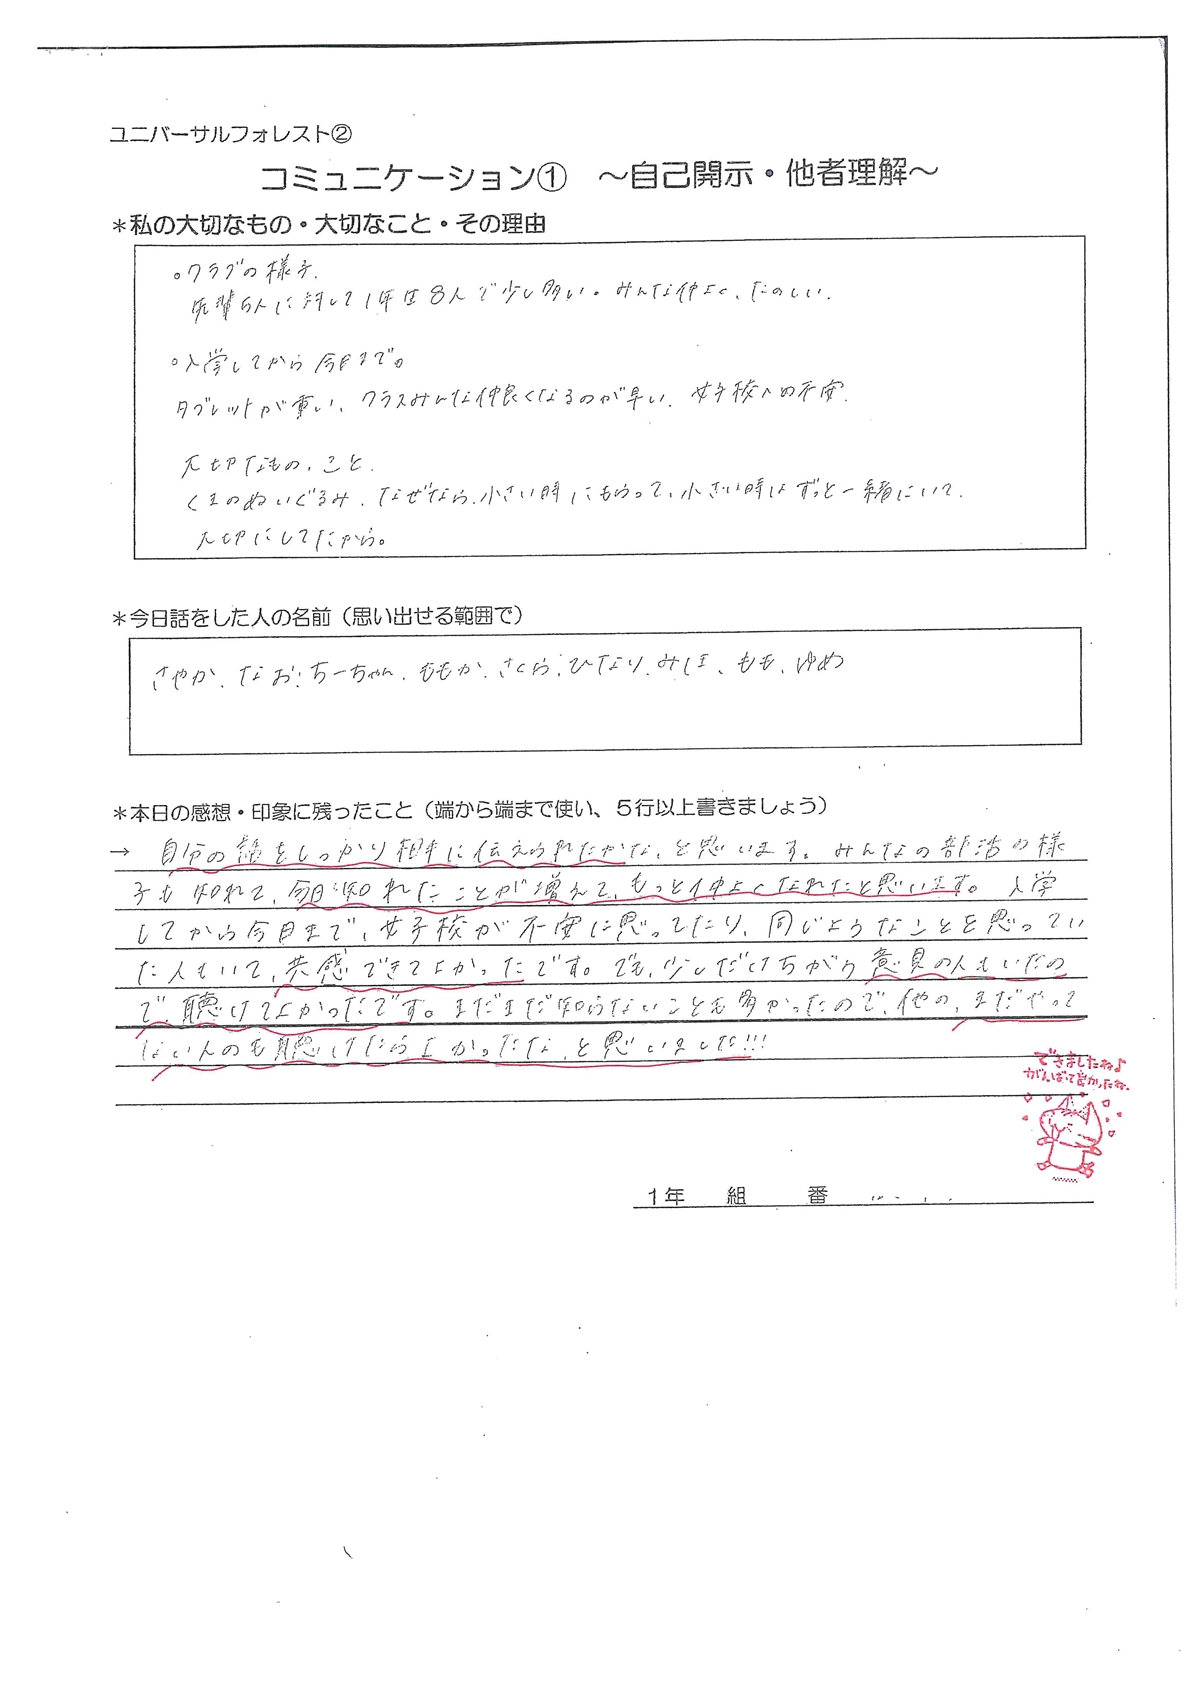 ユニバーサルフォレスト②
コミュニケーション① ～自己開示・他者理解～
＊私の大切なもの・大切なこと・その理由
○クラブの様子.
先輩5人に対して1年生8人で少し多い。みんな仲よく、たのしい.
○入学してから今日まで。
タブレットが重い、クラスみんな仲良くなるのが早い、女子校への不安.
大切なもの、こと.
くまのぬいぐるみ、なぜなら、小さい時にもらって、小さい時はずっと一緒にいて、
大切にしてたから。
＊今日話をした人の名前（思い出せる範囲で）
さやか、なお、ちーちゃん、ももか、さくら、ひなり、みほ、もも、ゆめ
＊本日の感想・印象に残ったこと（端から端まで使い、５行以上書きましょう）
→ 自分の話をしっかり相手に伝えられたかな、と思います。みんなの部活の様
子も知れて、今日知れたことが増えて、もっと仲よくなれたと思います。入学
してから今日まで、女子校が不安に思ってたり、同じようなことを思ってい
た人もいて、共感できてよかったです。でも、少しだけちがう意見の人もいたの
で、聴けてよかったです。まだまだ知らないことも多かったので、他の、まだやって
ない人のも聴けたらよかったな、と思いました!!!
できましたね♪
がんばって書かったね.
1年 組 番